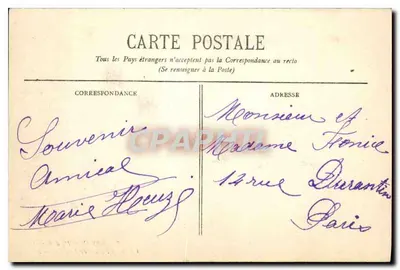 CARTE POSTALE
Tous les Pays étrangers n'acceptent pas la Correspondance au recto
(Se renseigner à la Poste)
CORRESPONDANCE
ADRESSE
Souvenir
Amical
Marie
Monsieur et
Madame
14 rue Durantin
Paris